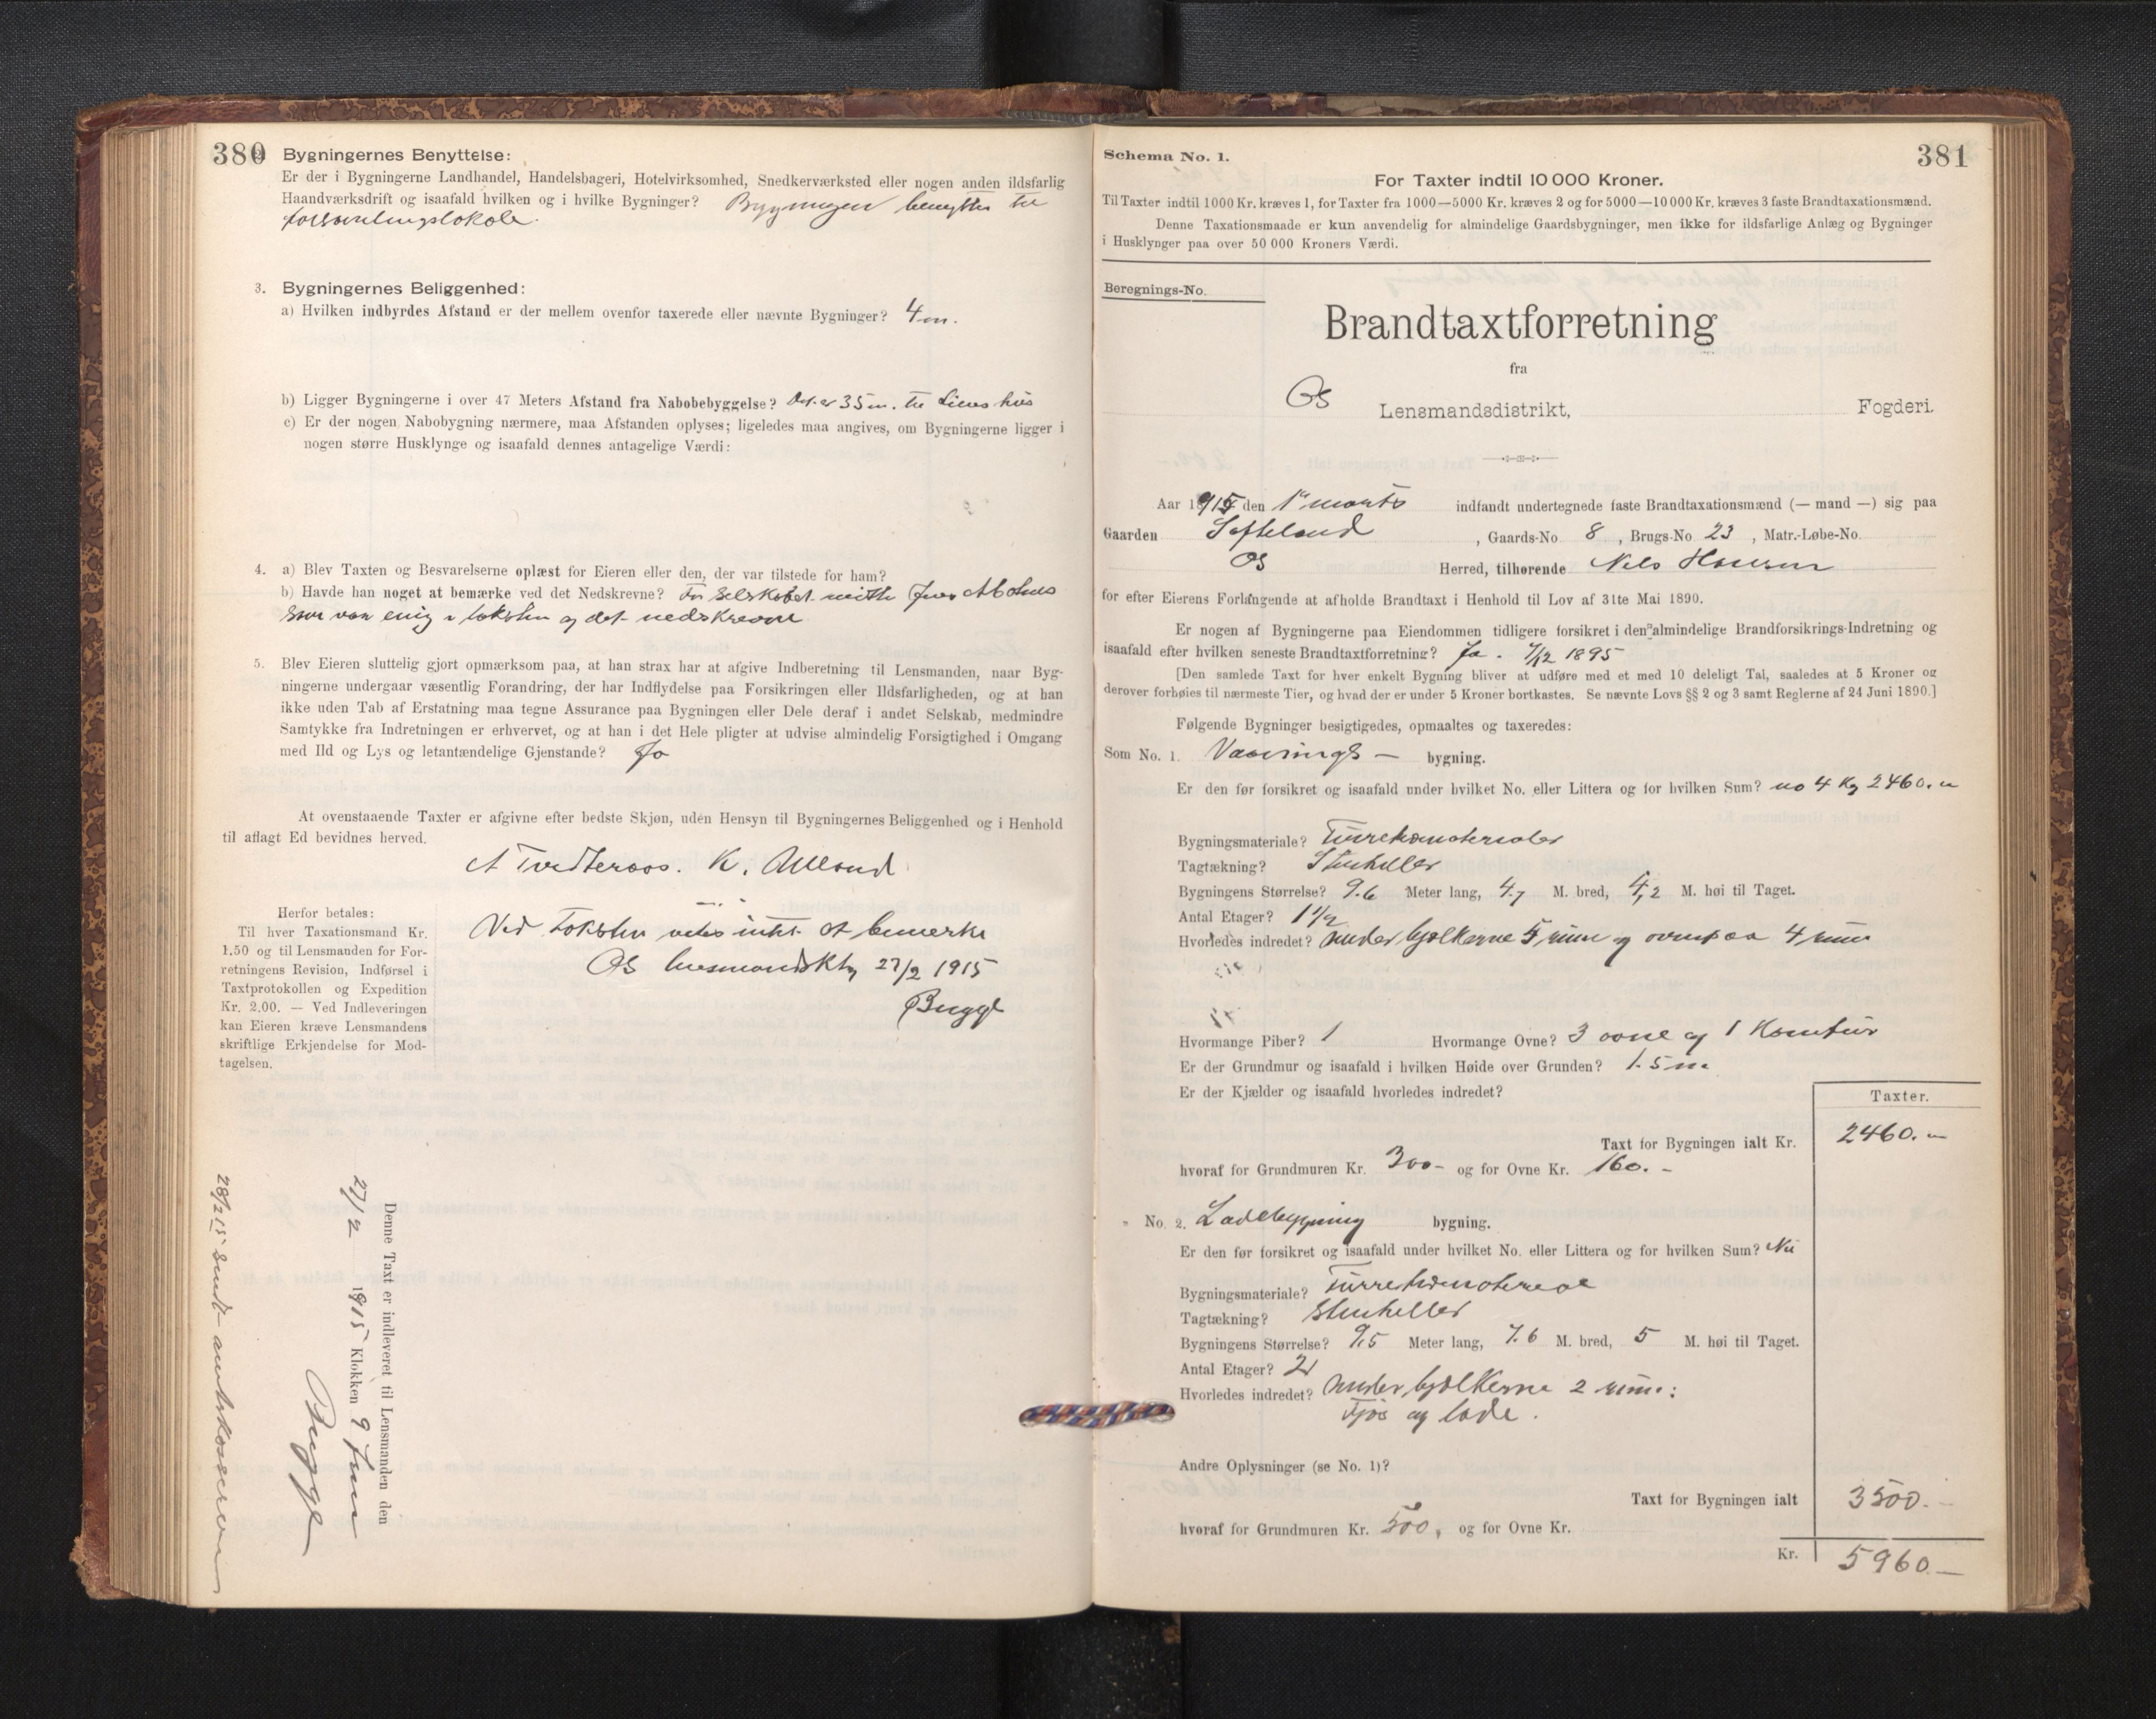 380
2. Bygningernes Benyttelse:
Er der i Bygningerne Landhandel, Handelsbageri, Hotelvirksomhed, Snedkerværksted eller nogen anden ildsfarlig
Haandværksdrift og isaafald hvilken og i hvilke Bygninger? Bygningen benyttes til
forsamlingslokale.
3. Bygningernes Beliggenhed:
a) Hvilken indbyrdes Afstand er der mellem ovenfor taxerede eller nævnte Bygninger? 4 m.
b) Ligger Bygningerne i over 47 Meters Afstand fra Nabobebyggelse? Det er 35 m. til Liens hus
c) Er der nogen Nabobygning nærmere, maa Afstanden oplyses; ligeledes maa angives, om Bygningerne ligger i
nogen større Husklynge og isaafald dennes antagelige Værdi:
4. a) Blev Taxten og Besvarelserne oplæst for Eieren eller den, der var tilstede for ham?
b) Havde han noget at bemærke ved det Nedskrevne? For selskabet mötte
som var enig i taksten og det nedskrevne
5. Blev Eieren sluttelig gjort opmærksom paa, at han strax har at afgive Indberetning til Lensmanden, naar Byg-
ningerne undergaar væsentlig Forandring, der har Indflydelse paa Forsikringen eller Ildsfarligheden, og at han
ikke uden Tab af Erstatning maa tegne Assurance paa Bygningen eller Dele deraf i andet Selskab, medmindre
Samtykke fra Indretningen er erhvervet, og at han i det Hele pligter at udvise almindelig Forsigtighed i Omgang
med Ild og Lys og letantændelige Gjenstande? Ja
At ovenstaaende Taxter er afgivne efter bedste Skjøn, uden Hensyn til Bygningernes Beliggenhed og i Henhold
til aflagt Ed bevidnes herved.
A Tvedteraas. K. Ulland
Herfor betales:
Til hver Taxationsmand Kr.
1.50 og til Lensmanden for For-
retningens Revision, Indførsel i
Taxtprotokollen og Expedition
Kr. 2.00. — Ved Indleveringen
kan Eieren kræve Lensmandens
skriftlige Erkjendelse for Mod-
tagelsen.
Ved taksten vides intet at bemerke
Os lensmandsktr 27/2 1915
Bugge
Denne Taxt er indleveret til Lensmanden den
27/2 1915 Klokken 9 fm
Bugge
28/2 15 Sendt amtskasseren
381
Schema No. 1.
For Taxter indtil 10 000 Kroner.
Til Taxter indtil 1000 Kr. kræves 1, for Taxter fra 1000—5000 Kr. kræves 2 og for 5000—10 000 Kr. kræves 3 faste Brandtaxationsmænd.
Denne Taxationsmaade er kun anvendelig for almindelige Gaardsbygninger, men ikke for ildsfarlige Anlæg og Bygninger
i Husklynger paa over 50 000 Kroners Værdi.
Beregnings-No.
Brandtaxtforretning
fra
Os Lensmandsdistrikt, Fogderi.
Aar 1915 den 1ste marts indfandt undertegnede faste Brandtaxationsmænd (— mand —) sig paa
Gaarden Søfteland, Gaards-No 8, Brugs-No 23, Matr.-Løbe-No.
Os Herred, tilhørende Nils Hansen
for efter Eierens Forlangende at afholde Brandtaxt i Henhold til Lov af 31te Mai 1890.
Er nogen af Bygningerne paa Eiendommen tidligere forsikret i den almindelige Brandforsikrings-Indretning og
isaafald efter hvilken seneste Brandtaxtforretning? Ja. 7/12 1895
[Den samlede Taxt for hver enkelt Bygning bliver at udføre med et med 10 deleligt Tal, saaledes at 5 Kroner og
derover forhøies til nærmeste Tier, og hvad der er under 5 Kroner bortkastes. Se nævnte Lovs §§ 2 og 3 samt Reglerne af 24 Juni 1890.]
Følgende Bygninger besigtigedes, opmaaltes og taxeredes:
Som No. 1. Vaanings — bygning.
Er den før forsikret og isaafald under hvilket No. eller Littera og for hvilken Sum? no 4 Kr 2460.-
Bygningsmateriale? Tørretræmaterialer
Tagtækning? Stenheller
Bygningens Størrelse? 9.6 Meter lang, 4.7 M. bred, 4,2 M. høi til Taget.
Antal Etager? 1 1/2
Hvorledes indredet? under bjelkerne 5 rum og ovenpaa 4 rum
Hvormange Piber? 1 Hvormange Ovne? 3 ovne og 1 Komfur
Er der Grundmur og isaafald i hvilken Høide over Grunden? 1.5 m.
Er der Kjælder og isaafald hvorledes indredet?
Taxter.
Taxt for Bygningen ialt Kr. 2460.-
hvoraf for Grundmuren Kr. 300 - og for Ovne Kr. 160. -
" No. 2. Ladebygning bygning.
Er den før forsikret og isaafald under hvilket No. eller Littera og for hvilken Sum? Nei
Bygningsmateriale? Tørretræmateriale
Tagtækning? Stenheller
Bygningens Størrelse? 9,5 Meter lang, 7.6 M. bred, 5 M. høi til Taget.
Antal Etager? 2
Hvorledes indredet? under bjelkerne 2 rum:
Fjøs og lade.
Andre Oplysninger (se No. 1)?
Taxt for Bygningen ialt 3500.-
hvoraf for Grundmuren Kr. 500, og for Ovne Kr.
Kr. 5960.-